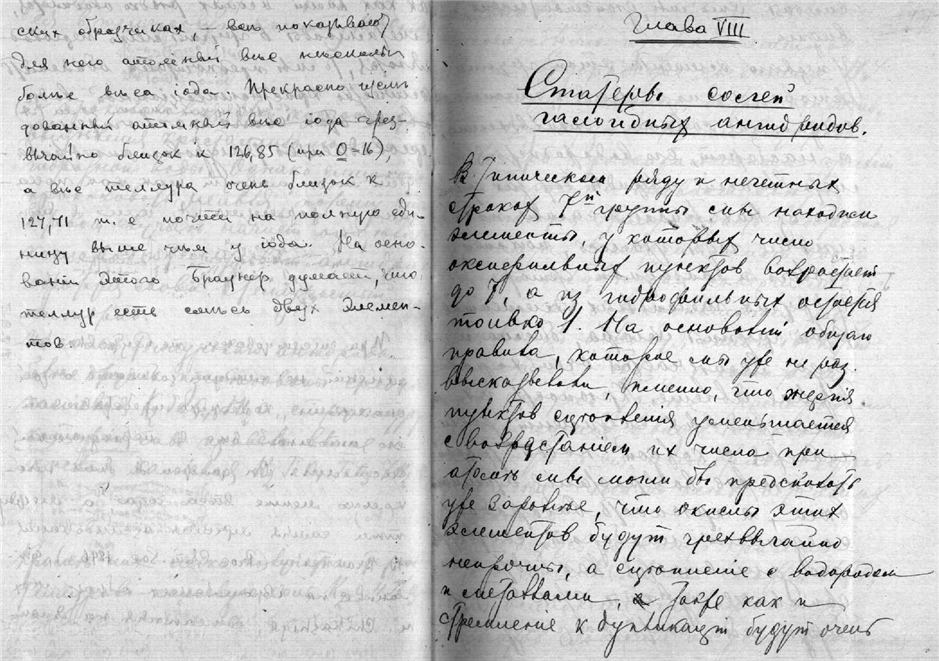 ских образчиках, все показывают
для него атомный вес несколько
более веса iода. Прекрасно изслѣ
дованный атомный вес iода чрез-
вычайно близок к 126,85 (при O=16),
а вес теллура очень близок к
127,71 т. е почти на полную еди-
ницу выше чем у iода. На осно-
ванiи этого Браунер думает, что
теллур есть смесь двух элемен-
тов.
Глава VIII.
галоидных ангидридов.
В типическом ряду и нечетных
строках 7й группы мы находим
элементы, у которых число
оксифильных пунктов возрастает
до 7, а из гидрофильных остается
только 1. На основанiи общаго
правила, которое мы уже не раз
высказывали, именно, что энергiя
пунктов сцепления уменьшается
с возрастанием их числа при
атоме мы могли бы предсказать
уже заранее, что окислы этих
элементов будут чрезвычайно
непрочны, а сцепление с водородом
и металлами, также как и
стремление к будут очень